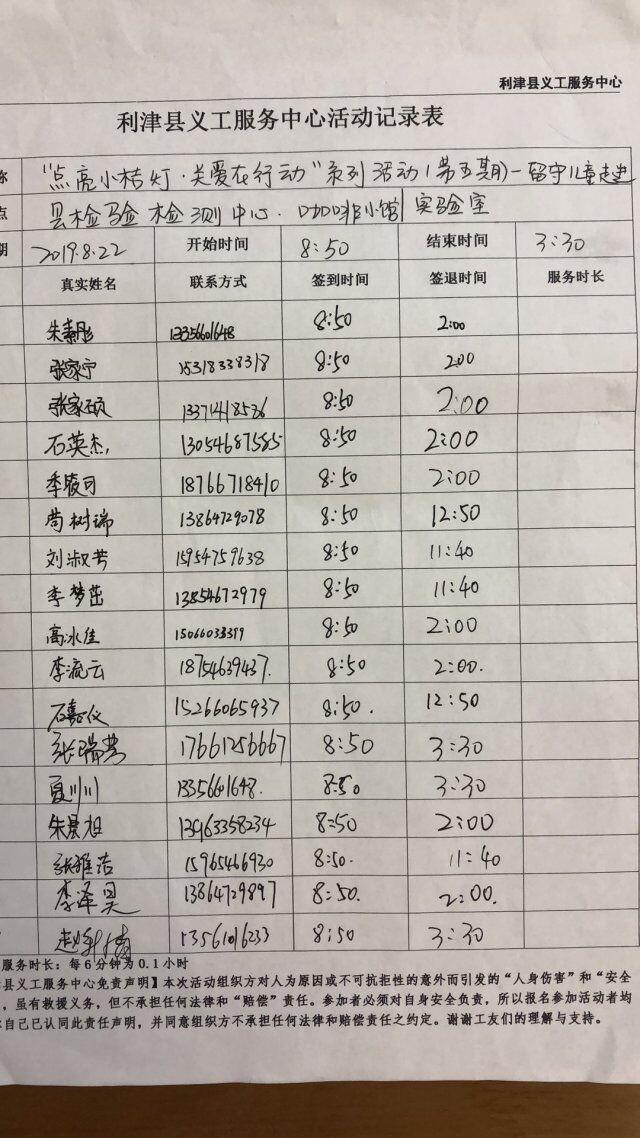 利津县义工服务中心
利津县义工服务中心活动记录表
称 "点亮小桔灯·关爱在行动"系列活动(第五期)-留守儿童走进
点 县检验检测中心.咖啡小馆 实验室
期 2019.8.22 开始时间 8:50 结束时间 3:30
真实姓名 联系方式 签到时间 签退时间 服务时长
朱素彤 13356601648 8:50 2:00
张家宁 15318338318 8:50 2:00
张家硕 13371418536 8:50 2:00
石英杰 13054687585 8:50 2:00
季陵可 18766718410 8:50 2:00
苟树瑞 13864729078 8:50 12:50
刘淑芳 15954759638 8:50 11:40
李梦茁 13854672979 8:50 11:40
高冰佳 15066033399 8:50 2:00
李流云 18754639437. 8:50 2:00.
石嘉仪 15266065937 8:50. 12:50
张瑞芳 17661256667 8:50 3:30
夏川川 1335601648. 8:50 3:30
朱景旭 13963358234 8:50 2:00
张雅洁 15965466930 8:50. 11:40
李泽昊 13864729897 8:50. 2:00.
赵 13561016233 8:50 3:30
服务时长：每6分钟为0.1小时
县义工服务中心免责声明】本次活动组织方对人为原因或不可抗拒性的意外而引发的"人身伤害"和"安全
，虽有救援义务，但不承担任何法律和"赔偿"责任。参加者必须对自身安全负责，所以报名参加活动者均
自己已认同此责任声明，并同意组织方不承担任何法律和赔偿责任之约定。谢谢工友们的理解与支持。